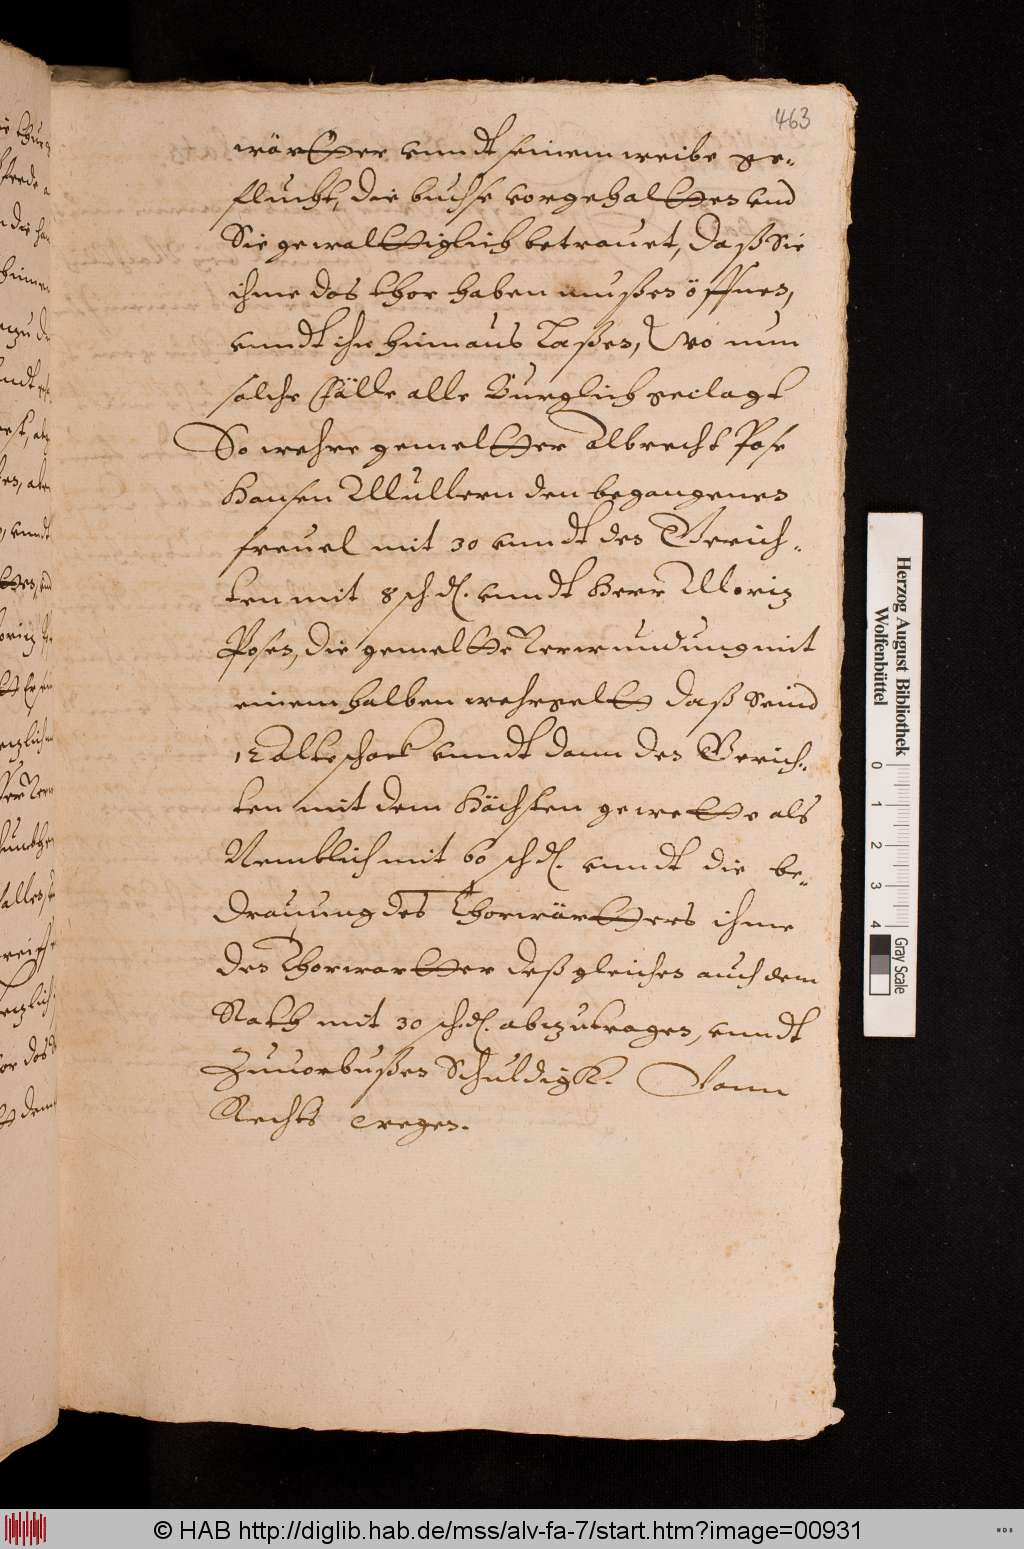 463
wärtter vnndt seinem weibe ge-
flucht, die buchse vorgehaltten vnd
Sie gewalttiglich betrauet, daß Sie
ihme das thor haben mußen öffnen,
vnndt ihn hinnaus laßen, Wo nun
solche Fälle alle Burglich geclagt
So wehre gemeltter Albrecht Pose
Hansen Mullern den begangenen
freuel mit 30 vnndt den Gerich-
ten mit 8 ß d. vnndt Herr Moriz
Posen, die gemeltte Verwundung mit
einem halben wehrgeltt daß seind
12 Alteschock vnndt dann den Gerich-
ten mit dem Höchsten gewette als
Nemblich mit 60 ß d. vnndt die be-
drauung des Thorwärtters ihme
den Thorwartter deßgleichen auch dem
Rath mit 30 ß d. abzutragen, vnndt
Zuuorbußen Schuldigk. Vonn
Rechts wegen.
Herzog August Bibliothek
Wolfenbüttel
0 1 2 3 4
Gray Scale
© HAB http://diglib.hab.de/mss/alv-fa-7/start.htm?image=00931